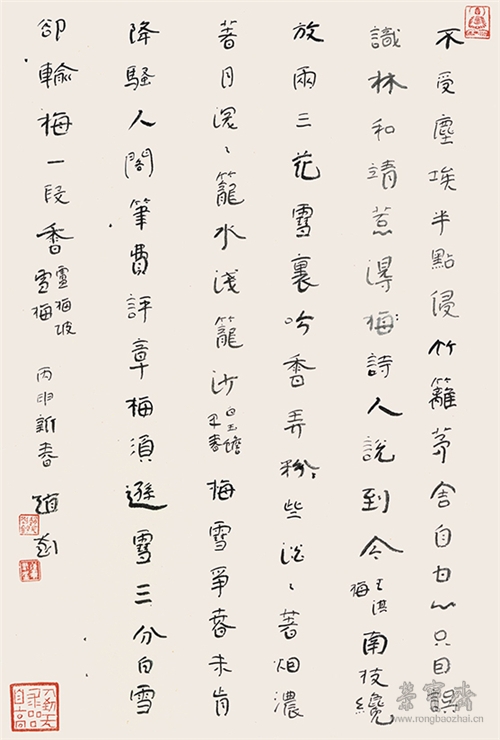 不受塵埃半點侵竹籬茅舍自甘心只因誤
識林和靖惹得梅詩人說到今王淇梅南枝纔
放兩三花雪裏吟香弄粉些淡〻著烟濃
著月深〻籠水淺籠沙白玉蟾早春梅雪爭春未肯
降騷人閣筆費評章梅須遜雪三分白雪
卻輸梅一段香盧梅坡雪梅丙申新春趙
榮寶齋
www.rongbaozhai.cn